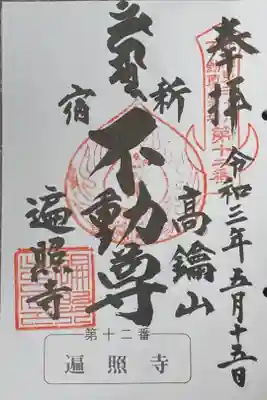 奉拝
令和三年五月十五日
高鑰山
新宿
不動尊
遍照寺
第十二番
第十二番
遍照寺